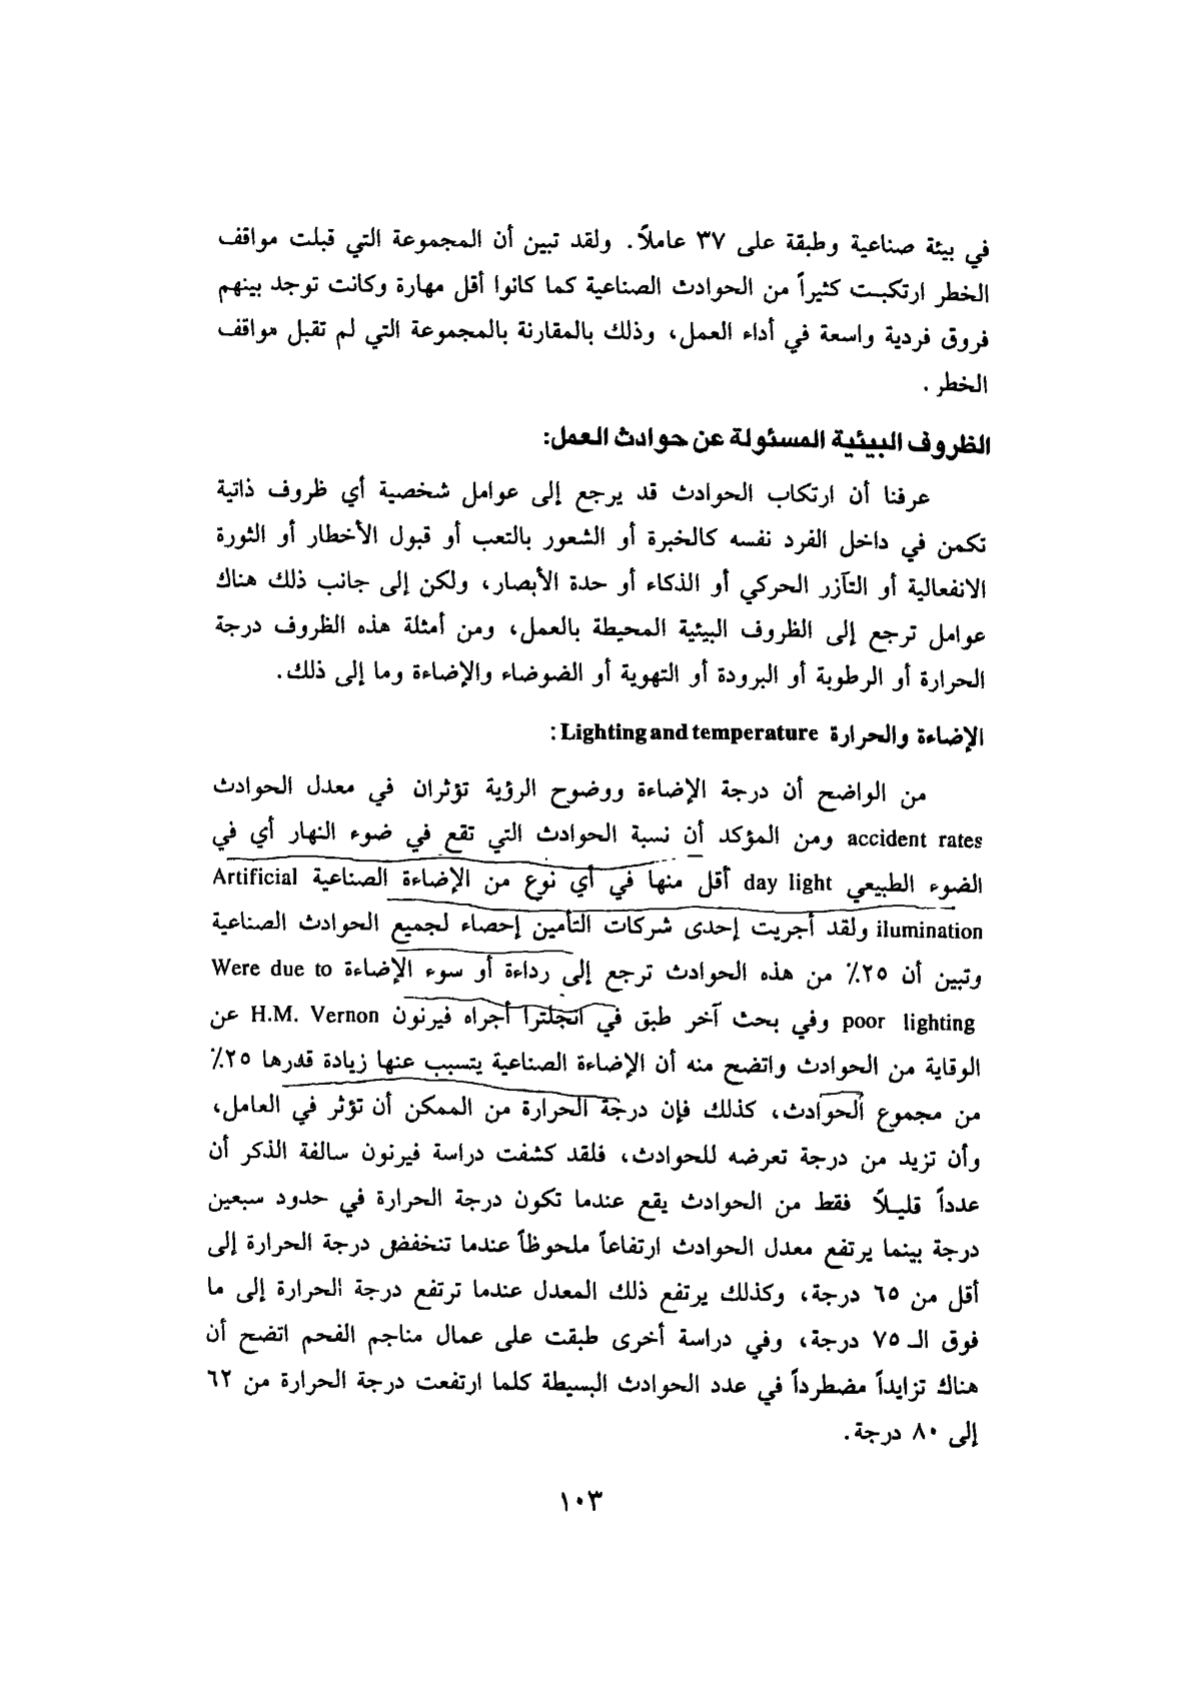 في بيئة صناعية وطبقة على ٣٧ عاملاً. ولقد تبين أن المجموعة التي قبلت مواقف
الخطر ارتكبت كثيراً من الحوادث الصناعية كما كانوا أقل مهارة وكانت توجد بينهم
فروق فردية واسعة في أداء العمل، وذلك بالمقارنة بالمجموعة التي لم تقبل مواقف
الخطر.
الظروف البيئية المسئولة عن حوادث العمل:
عرفنا أن ارتكاب الحوادث قد يرجع إلى عوامل شخصية أي ظروف ذاتية
تكمن في داخل الفرد نفسه كالخبرة أو الشعور بالتعب أو قبول الأخطار أو الثورة
الانفعالية أو التآزر الحركي أو الذكاء أو حدة الأبصار، ولكن إلى جانب ذلك هناك
عوامل ترجع إلى الظروف البيئية المحيطة بالعمل، ومن أمثلة هذه الظروف درجة
الحرارة أو الرطوبة أو البرودة أو التهوية أو الضوضاء والإضاءة وما إلى ذلك.
الإضاءة والحرارة Lighting and temperature :
من الواضح أن درجة الإضاءة ووضوح الرؤية تؤثران في معدل الحوادث
accident rates ومن المؤكد أن نسبة الحوادث التي تقع في ضوء النهار أي في
الضوء الطبيعي day light أقل منها في أي نوع من الإضاءة الصناعية Artificial
ilumination ولقد أجريت إحدى شركات التأمين إحصاء لجميع الحوادث الصناعية
وتبين أن ٢٥٪ من هذه الحوادث ترجع إلى رداءة أو سوء الإضاءة Were due to
poor lighting وفي بحث آخر طبق في انجلترا أجراه فيرنون H.M. Vernon عن
الوقاية من الحوادث واتضح منه أن الإضاءة الصناعية يتسبب عنها زيادة قدرها ٢٥٪
من مجموع الحوادث، كذلك فإن درجة الحرارة من الممكن أن تؤثر في العامل،
وأن تزيد من درجة تعرضه للحوادث، فلقد كشفت دراسة فيرنون سالفة الذكر أن
عدداً قليلاً فقط من الحوادث يقع عندما تكون درجة الحرارة في حدود سبعين
درجة بينما يرتفع معدل الحوادث ارتفاعاً ملحوظاً عندما تنخفض درجة الحرارة إلى
أقل من ٦٥ درجة، وكذلك يرتفع ذلك المعدل عندما ترتفع درجة الحرارة إلى ما
فوق الـ ٧٥ درجة، وفي دراسة أخرى طبقت على عمال مناجم الفحم اتضح أن
هناك تزايداً مضطرداً في عدد الحوادث البسيطة كلما ارتفعت درجة الحرارة من ٦٢
إلى ٨٠ درجة.
١٠٣